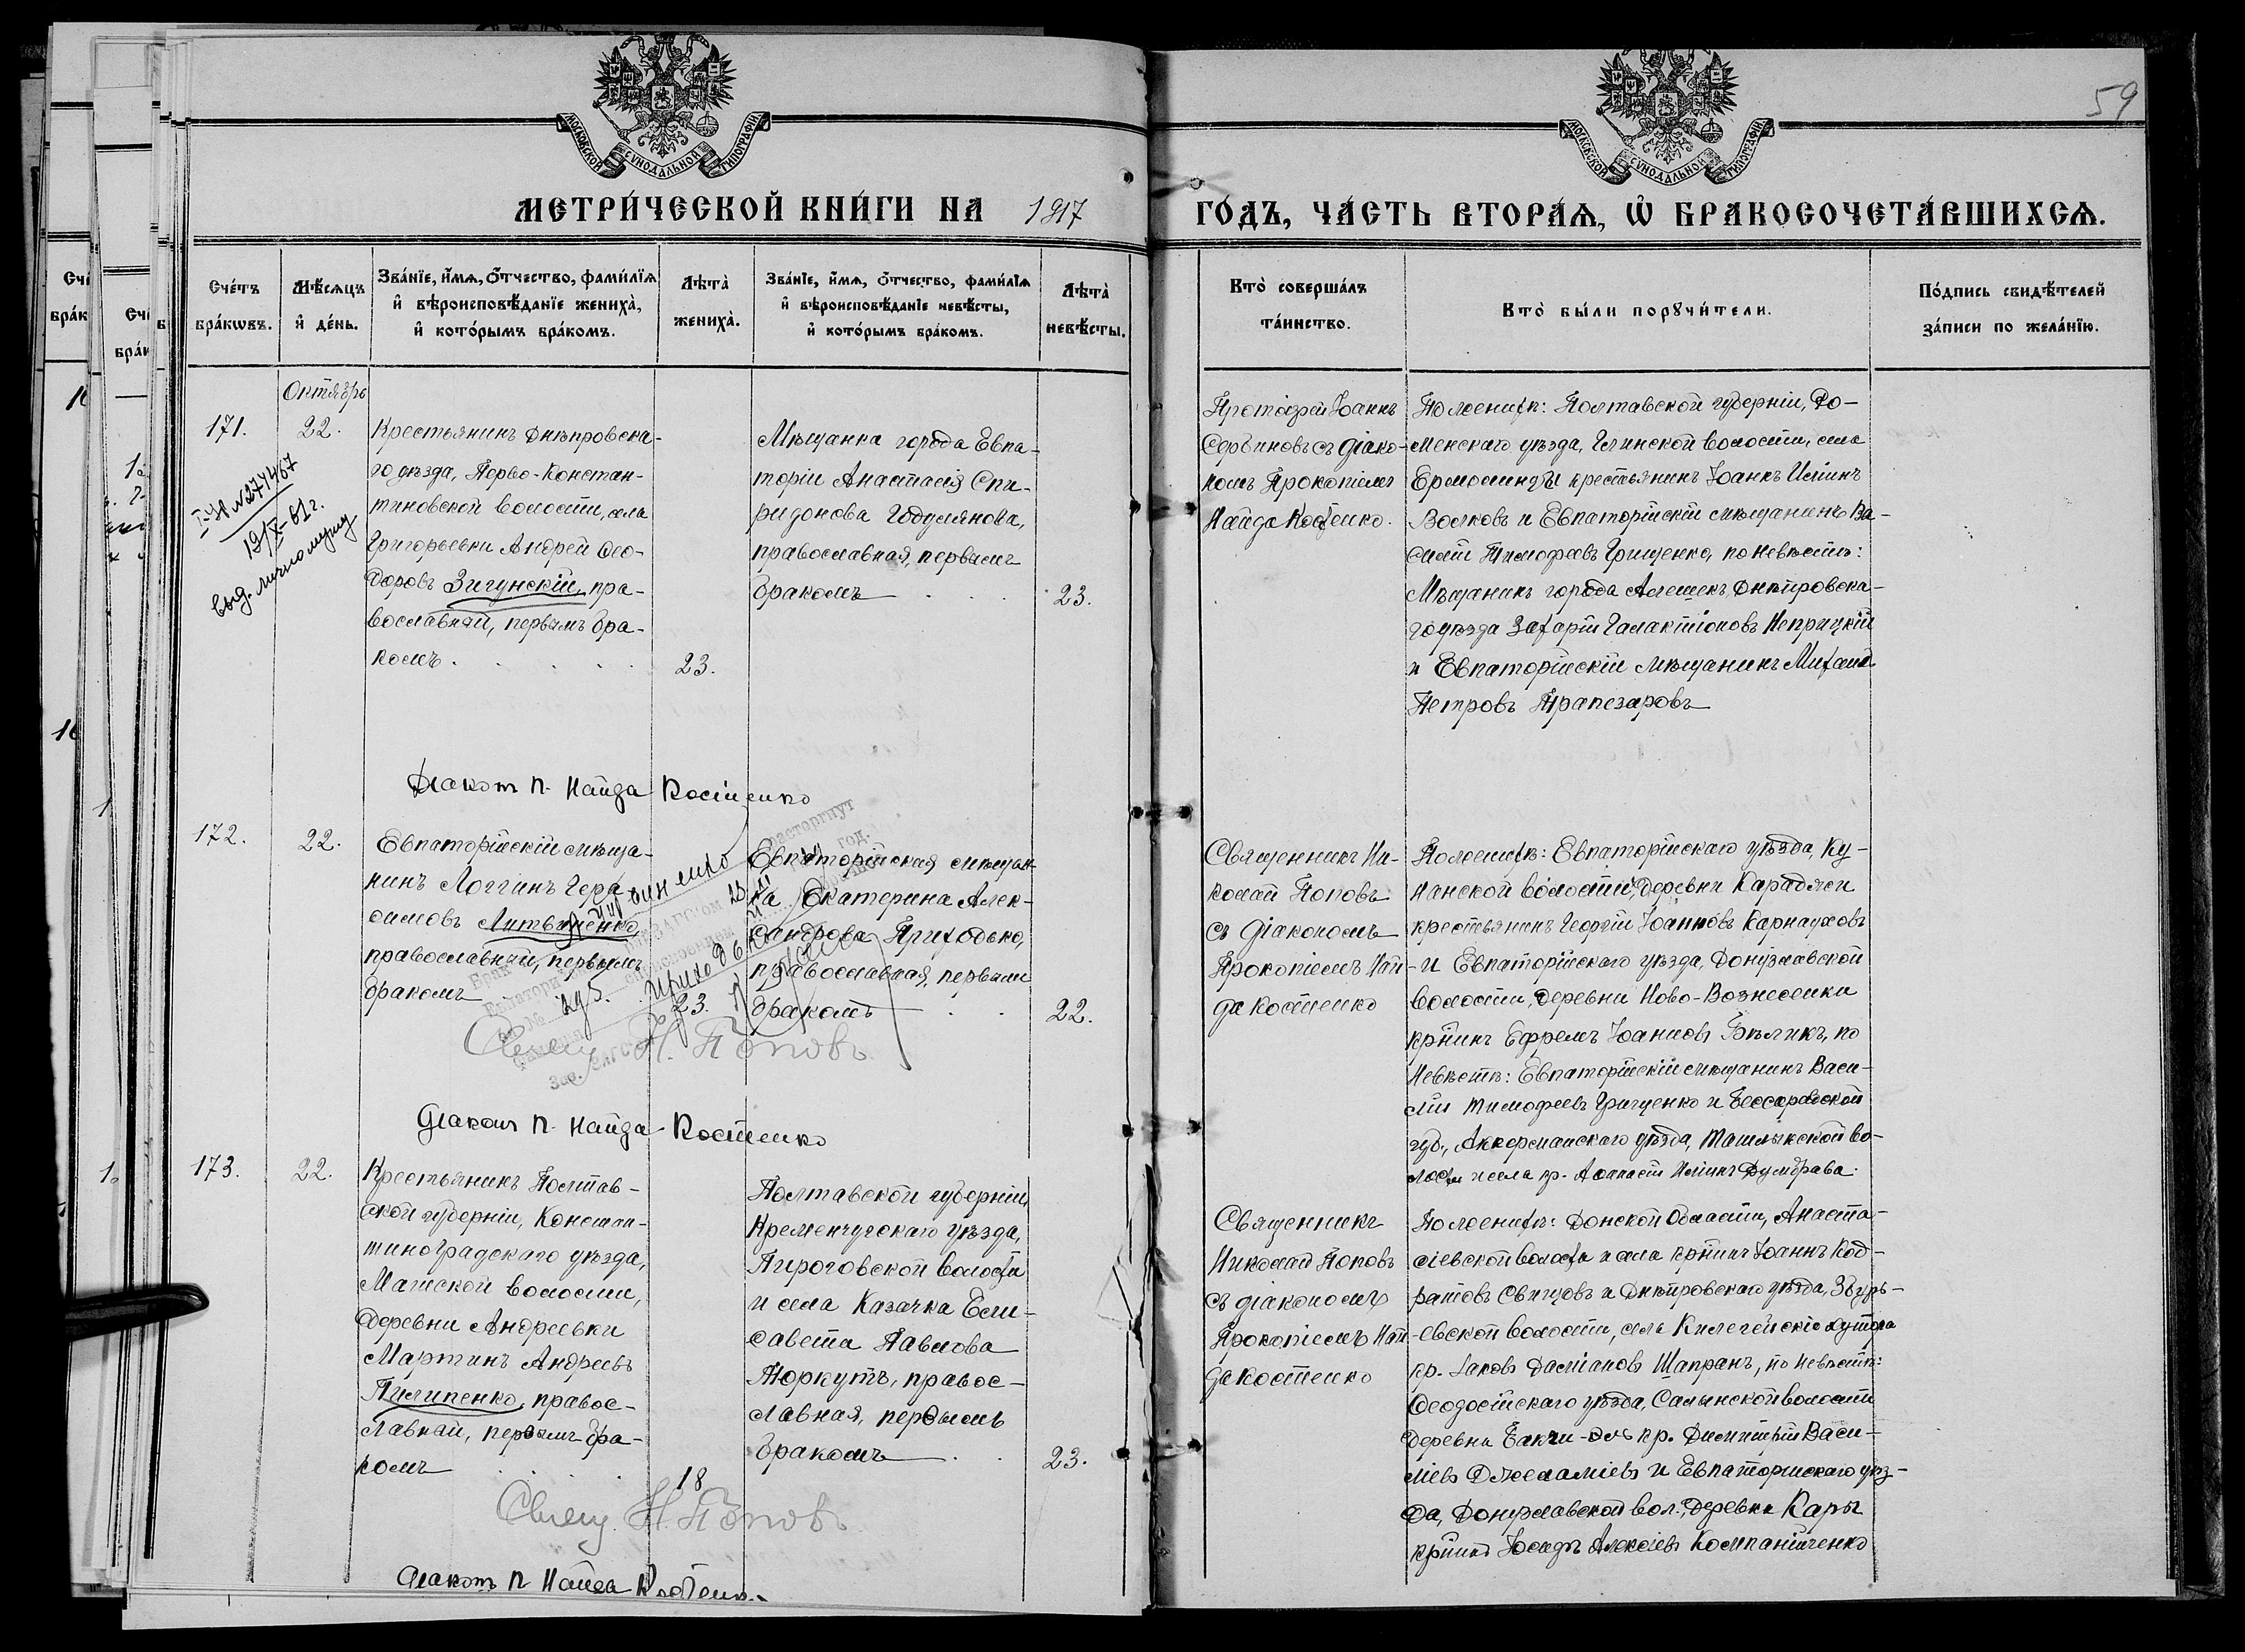 59
МОСКОВСКОЙ СѴНОДАЛЬНОЙ ТИПОГРАФІИ
МОСКОВСКОЙ СѴНОДАЛЬНОЙ ТИПОГРАФІИ
МЕТРИ́ЧЕСКОЙ КНИ́ГИ НА 1917
ГО́ДЪ, ЧА́СТЬ ВТОРА́Ѧ, Ѡ҆ БРАКОСОЧЕТА́ВШИХСѦ.
Сче́тъ бра́кѡвъ.
Мѣ́сѧцъ и҆ де́нь.
Зва́нїе, и҆́мѧ, ѻ҆́тчество, фами́лїѧ
и҆ вѣроисповѣ́данїе жениха̀,
и҆ кото́рымъ бра́комъ.
Лѣ́та̀ жениха̀.
Зва́нїе, и҆́мѧ, ѻ҆́тчество, фами́лїѧ
и҆ вѣроисповѣ́данїе невѣ́сты,
и҆ кото́рымъ бра́комъ.
Лѣ́та̀ невѣ́сты.
Кто̀ соверша́лъ та́инство.
Кто̀ бы́ли порꙋчи́тели.
По́дпись свидѣ́телей за́писи по жела́нїю.
Октябрь
171.
22.
Крестьянинъ Днѣпровска-
го уѣзда, Перво-Констан-
тиновской волости, села
Григорьевки Андрей Ѳео-
доровъ Зигунскій, пра-
вославный, первымъ бра-
комъ
23.
Мѣщанка города Евпа-
торіи Анастасія Спи-
ридонова
православная, первымъ
бракомъ
23.
I-ЯА №274467
19/X-61г.
выд. лично мужу
Протоіерей Іоаннъ
Сербиновъ съ діако-
номъ Прокопіемъ
Найда Костенко.
По женихѣ: Полтавской губерніи, Ро-
менскаго уѣзда, Глинской волости, села
крестьянинъ Іоаннъ Иліинъ
Волковъ и Евпаторійскій мѣщанинъ Ва-
силій Тимофеевъ Грищенко, по невѣстѣ:
Мѣщанинъ города Алешекъ, Днѣпровска-
го уѣзда Захарій Галактіоновъ Неприцкій
и Евпаторійскій мѣщанинъ Михаил
Петровъ Трапезаровъ
Діаконъ П. Найда Костенко
172.
22.
Евпаторійскій мѣща-
нинъ Логгинъ Гера-
симовъ Литвиненко,
православный, первымъ
бракомъ
23.
Евпаторійская мѣщан-
ка Екатерина Алек-
сандрова Приходько,
православная, первымъ
бракомъ
22.
расторгнут
год.
Священникъ Ни-
колай Поповъ
съ Діакономъ
Прокопіемъ Най-
да Костенко
По женихѣ: Евпаторійскаго уѣзда, Ку-
нанской волости, деревни Караджи
крестьянинъ Георгій Іоанновъ Карнауховъ
и Евпаторійскаго уѣзда, Донузлавской
волости, деревни Ново-Вознесенки
кр̃нинъ Ефремъ Іоанновъ Бѣликъ, по
невѣстѣ: Евпаторійскій мѣщанинъ Васи-
лій Тимофеевъ Грищенко и Бессарабской
губ., Аккерманскаго уѣзда, Ташлыкской во-
лости и села кр. Аѳанасій Иліинъ Думбрава.
Свящ. Н. Поповъ
Діаконъ П. Найда Костенко
173.
22.
Крестьянинъ Полтав-
ской губерніи, Констан-
тиноградскаго уѣзда,
волости,
деревни Андреевки
Мартинъ Андреевъ
Пилипенко, правос-
лавный, первымъ бра-
комъ
18
Полтавской губерніи,
Кременчугскаго уѣзда,
Пироговской волости
и села Казачка Ели-
савета Павлова
Торкутъ, правос-
лавная, первымъ
бракомъ
23.
Священникъ
Николай Поповъ
съ діакономъ
Прокопіемъ Най-
да Костенко
По женихѣ: Донской Области, Анаста-
сіевской волости и села кр̃нинъ Іоаннъ Код-
ратовъ Свищовъ и Днѣпровскаго уѣзда, Збурь-
евской волости, села Килегейскіе хутора
кр. Іаковъ Даміановъ Шапранъ, по невѣстѣ:
Ѳеодосійскаго уѣзда, Салынской волости
деревни кр. Димитрій Васи-
ліевъ и Евпаторійскаго уѣз-
да, Донузлавской вол., деревни Кары
кр̃нинъ Іосифъ Алексіевъ Компанійченко
Свящ. Н. Поповъ
Діаконъ П Найда Костенко